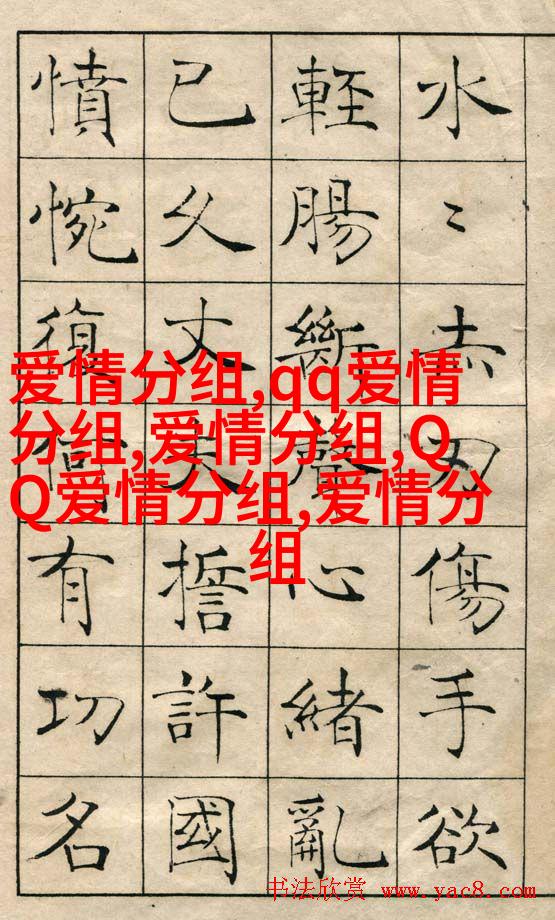 水〻赤刃傷手欲
輕腸斷聲心緒亂
已久丈夫誓許國
憤惋復何有功名
爱情分组,qq爱情
分组,爱情分组,Q
Q爱情分组,爱情分
组
书法欣赏 www.yac8.com